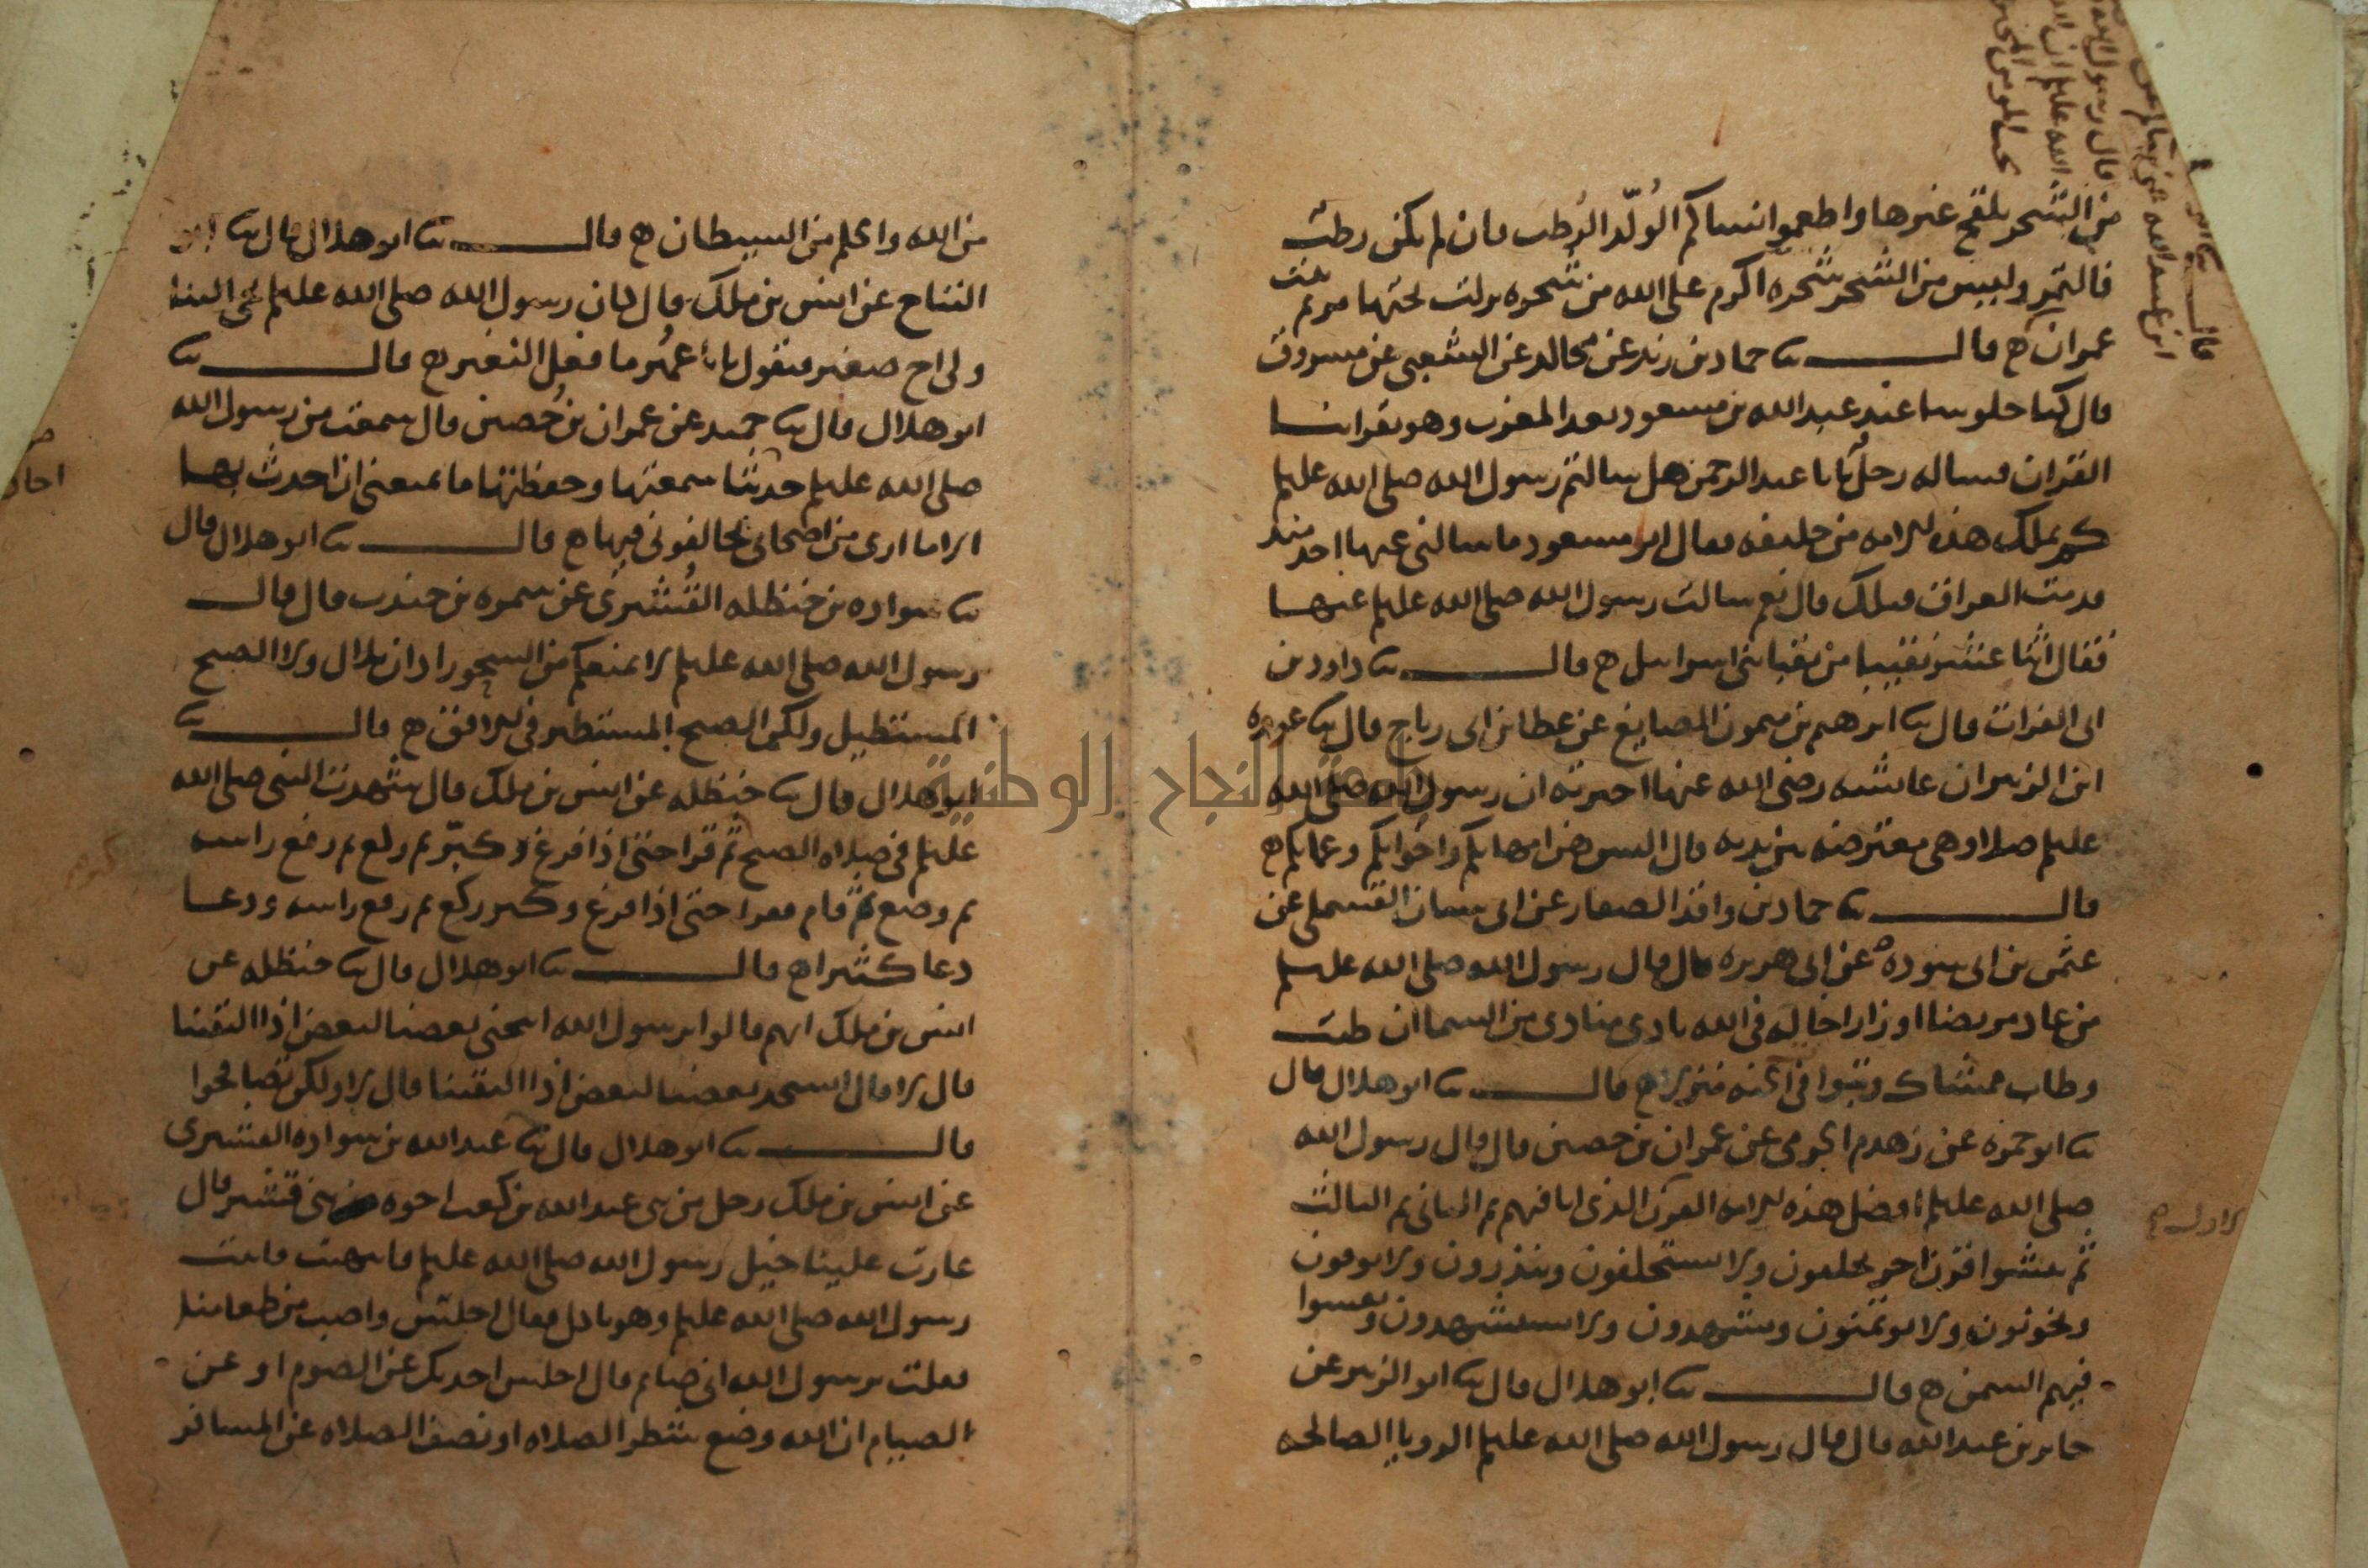 من الشجر يلقح غيرها واطعموا نساكم الولد الرطب فان لم يكن رطب
فالتمر وليس من الشجر شجره اكرم على الله من شجره نزلت تحتها مريم بنت
عمران ه قال ثنا حماد بن زيد عن مجالد عن الشعبي عن مسروق
قال كنا جلوسا عند عبد الله بن مسعود بعد المغرب وهو يقرانا
القران فساله رجل يابا عبد الرحمن هل سالتم رسول الله صلى الله عليه
كم يملك هذه الامه من خليفه فقال ابن مسعود ما سالني عنها احد منذ
قدمت العراق قبلك قال نعم سالت رسول الله صلى الله عليه عنها
فقال اثنا عشر نقيبا من نقبا بني اسرايل ه قال ثنا داود بن
ابي الفرات قال ثنا ابرهيم بن ميمون الصايغ عن عطا بن ابي رباح قال ثنا عروه
ابن الزبير ان عايشه رضي الله عنها اخبرته ان رسول الله صلى الله
عليه صلا وهي معترضه بين يديه قال اليس هن امهاتكم واخواتكم وعماتكم ه
قال ثنا حماد بن واقد الصفار عن ابي سنان القسملي عن
عثمن بن ابي سوده عن ابي هريره قال قال رسول الله صلى الله عليه
من عاد مريضا او زار اخا له في الله نادى منادي من السما ان طبت
وطاب ممشاك وتبوا في الجنه منزلا ه قال ثنا ابو هلال قال
ثنا ابو حمزه عن زهدم الجرمي عن عمران بن حصين قال قال رسول الله
صلى الله عليه افضل هذه الامه القرن الذي انا فيهم ثم الثاني ثم الثالث
ثم ينشوا قرن اخر يحلفون ولا يستحلفون وينذرون ولا يوفون
ويخونون ولا يوتمنون ويشهدون ولا يستشهدون ويفشوا
فيهم السمن ه قال ثنا ابو هلال قال ثنا ابو الزبير عن
جابر بن عبد الله قال قال رسول الله صلى الله عليه الرويا الصالحه
من الله والحلم من الشيطان ه قال ثنا ابو هلال قال ثنا ابو
التياح عن انس بن ملك قال كان رسول الله صلى الله عليه
ولي اخ صغير فيقول يابا عمير ما فعل النغير ه قال ثنا
ابو هلال قال ثنا حميد عن عمران بن حصين قال سمعت من رسول الله
صلى الله عليه حديثا سمعتها وحفظتها ما يمنعني ان احدث بها
الا ما ارى من اصحابي يخالفوني فيها ه قال ثنا ابو هلال قال
ثنا سواده بن حنظله القشيري عن سمره بن جندب قال قال
رسول الله صلى الله عليه لا يمنعكم من السحور اذان بلال ولا الصبح
المستطيل ولكن الصبح المستطير في الافق ه قال ثنا
ابو هلال قال ثنا حنظله عن انس بن ملك قال شهدت النبي صلى الله
عليه في صلاه الصبح ثم قرا حتى اذا فرغ وكبر ثم ركع ثم رفع راسه
ثم وضع ثم قام فقرا حتى اذا فرغ وكبر ركع ثم رفع راسه ودعا
دعا كثيرا ه قال ثنا ابو هلال قال ثنا حنظله عن
انس بن ملك انهم قالوا يرسول الله اينحني بعضنا لبعض اذا التقينا
قال لا قال ايسجد بعضنا لبعض اذا التقينا قال لا ولكن تصافحوا
قال ثنا ابو هلال قال ثنا عبد الله بن سواده القشيري
عن انس بن ملك رجل من بني عبد الله بن كعب اخوه بني قشير قال
غارت علينا خيل رسول الله صلى الله عليه فانتهيت فاتيت
رسول الله صلى الله عليه وهو ياكل فقال اجلس واصب من طعامنا
فقلت يرسول الله اني صايم قال اجلس احدثك عن الصوم او عن
الصيام ان الله وضع شطر الصلاه او نصف الصلاه عن المسافر
جامعة النجاح الوطنية